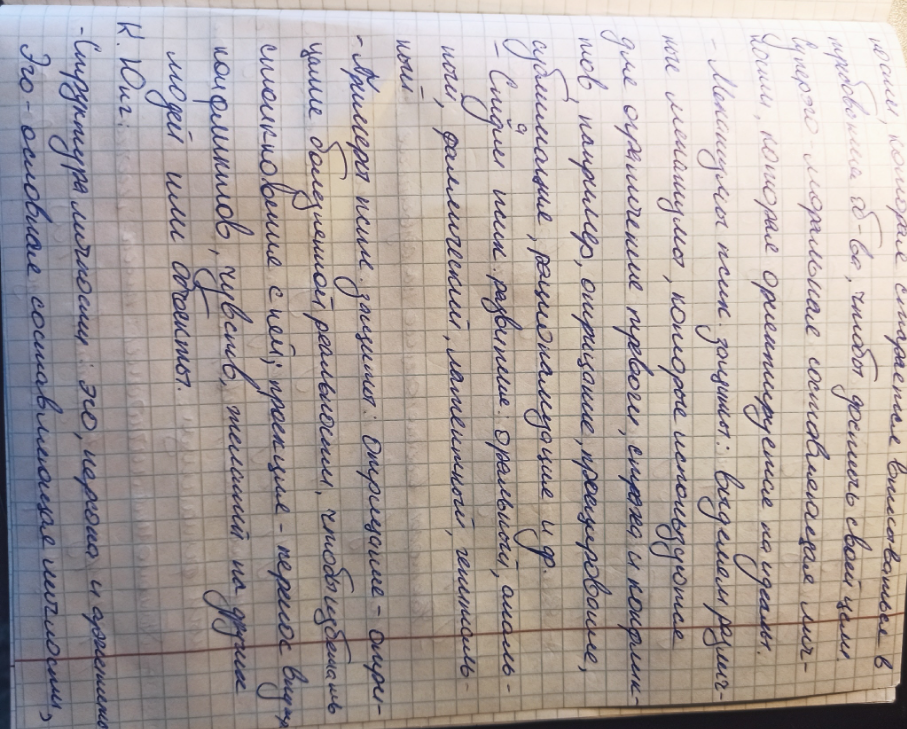 ности, которая старается вписоваться в
требования об-ва, чтобы достичь своей цели
суперэго моральные составляющая лич-
ности, которые ориентируемые на идеалы.
- Механизмы псих. защиты: выделял различ-
ные механизмы, которые используются
для ограничение тревоги, страха и конфлик-
тов, например, отрицание, проецирование,
сублимация, рационализация и др.
- Стадии псих. развитие: оральный, аналь-
ный, фаллический, латентный, гениталь-
ный.
- Примеры псих. защиты: отрицание - отри-
цание болезненной реальности, чтобы избежать
столкновение с ней; проекция - перенос внутр
конфликтов, чувств, желаний на других
людей или объекты.
К. Юнг:
- Структура личности: эго, персона и
Эго - основная составляющая личности,